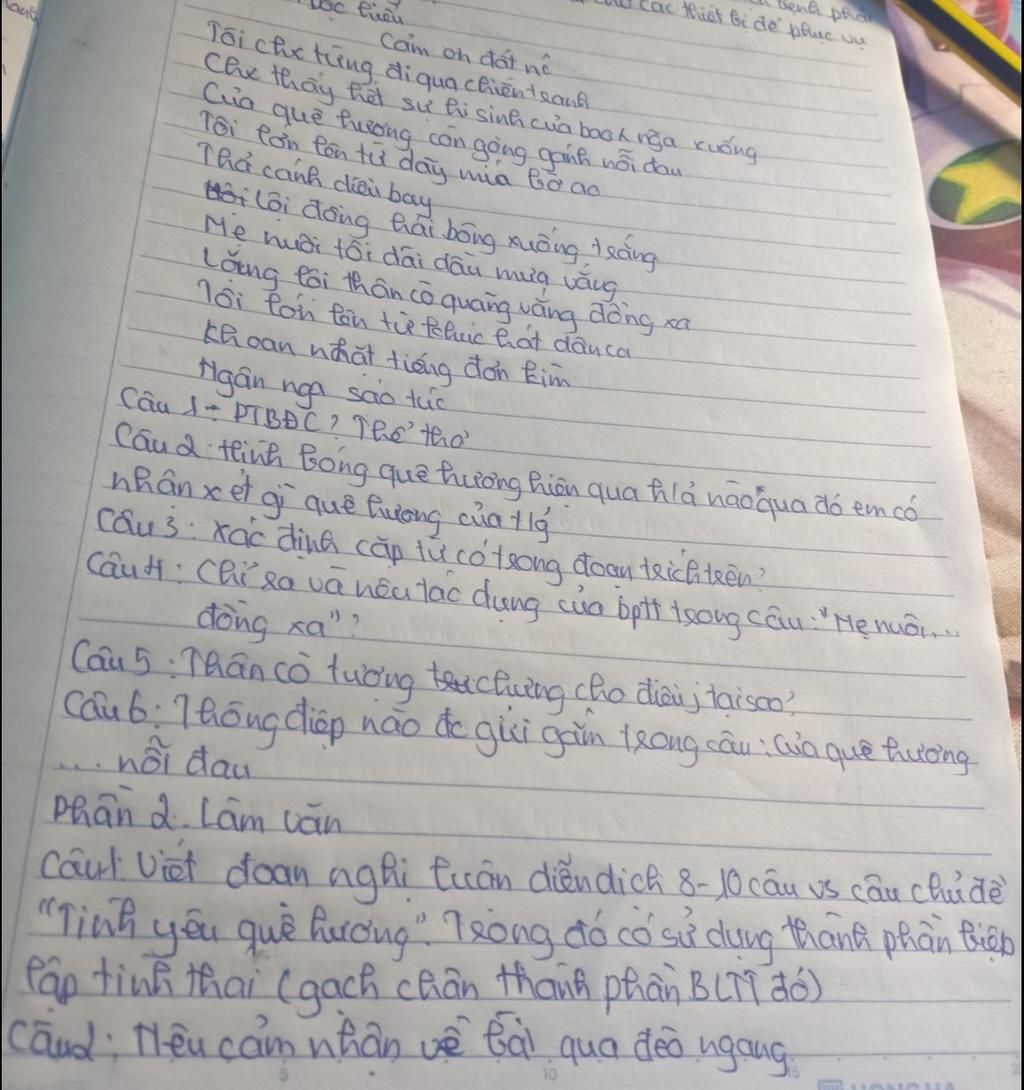 các thiết bị để phục vụ
Đọc hiểu
Cảm ơn đất nc
Tôi chx từng đi qua chiến tranh
Chx thấy hết sự hi sinh của bao ngã xuống
Của quê hương còn gồng gánh nỗi đau
Tôi lớn lên từ dãy mía bờ ao
Thả cánh diều bay
lội đồng hái bông xuống trắng
Mẹ nuôi tôi dãi dầu mưa vắng
Lưng tôi thân cò quang vắng đồng xa
Tôi lớn lên từ khúc hát dân ca
Khoan nhặt tiếng đờn kìm
Ngân nga sáo túc
Câu 1 : PTBĐC? Thể thơ
Câu 2: Hình bóng quê hương hiện qua h/ả nào qua đó em có
nhân xét gì quê hương của t/g
Câu 3: Xác định cặp từ có trong đoạn trích trên?
Câu 4: Chỉ ra và nêu tác dụng của bptt trong câu: "Mẹ nuôi...
đồng xa"?
Câu 5: Thân cò tượng chưng cho điều j taisao?
Câu 6: Thông điệp nào đc gửi gắm trong câu: Của quê hương
... nỗi đau
Phần 2. Làm văn
Câu 1: Viết đoạn nghị luận diễn dịch 8-10 câu vs câu chủ đề
"Tình yêu quê hương". Trong đó có sử dụng thành phần biệt
lập tình thái (gạch chân thành phần BLTT đó)
Câu 2: Nêu cảm nhận về bài qua đèo ngang.
5 10 15